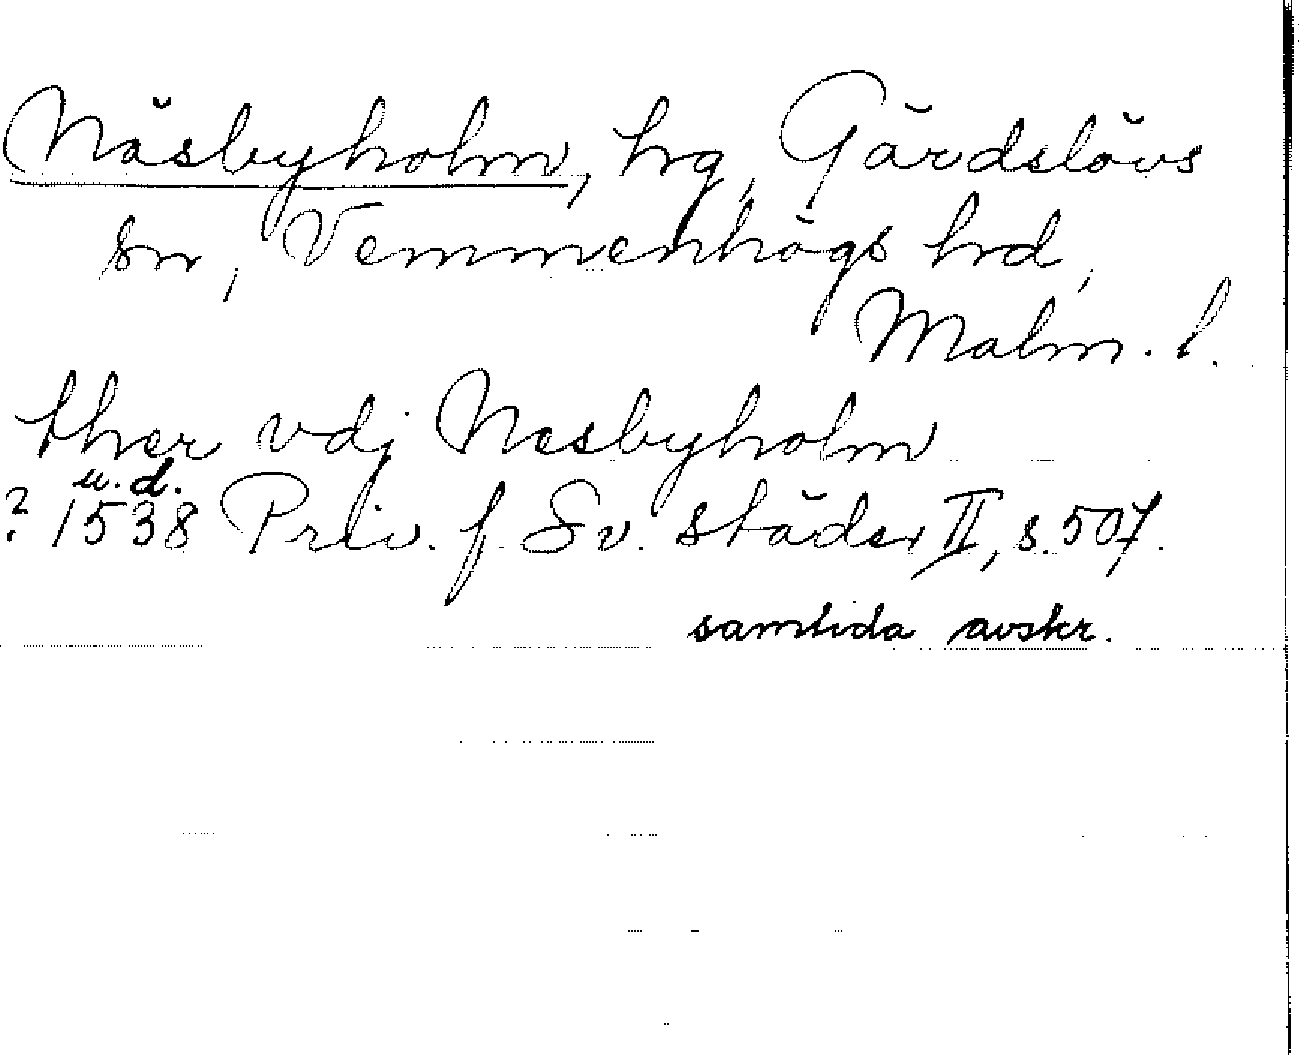 Näsbyholm, hrg, Gärdslövs
sn, Vemmenhögs hrd,
Malm. l.
ther vdj Nesbyholm
u.d.
? 1538 Priv. f. Sv. städer II, s. 507.
samtida avskr.